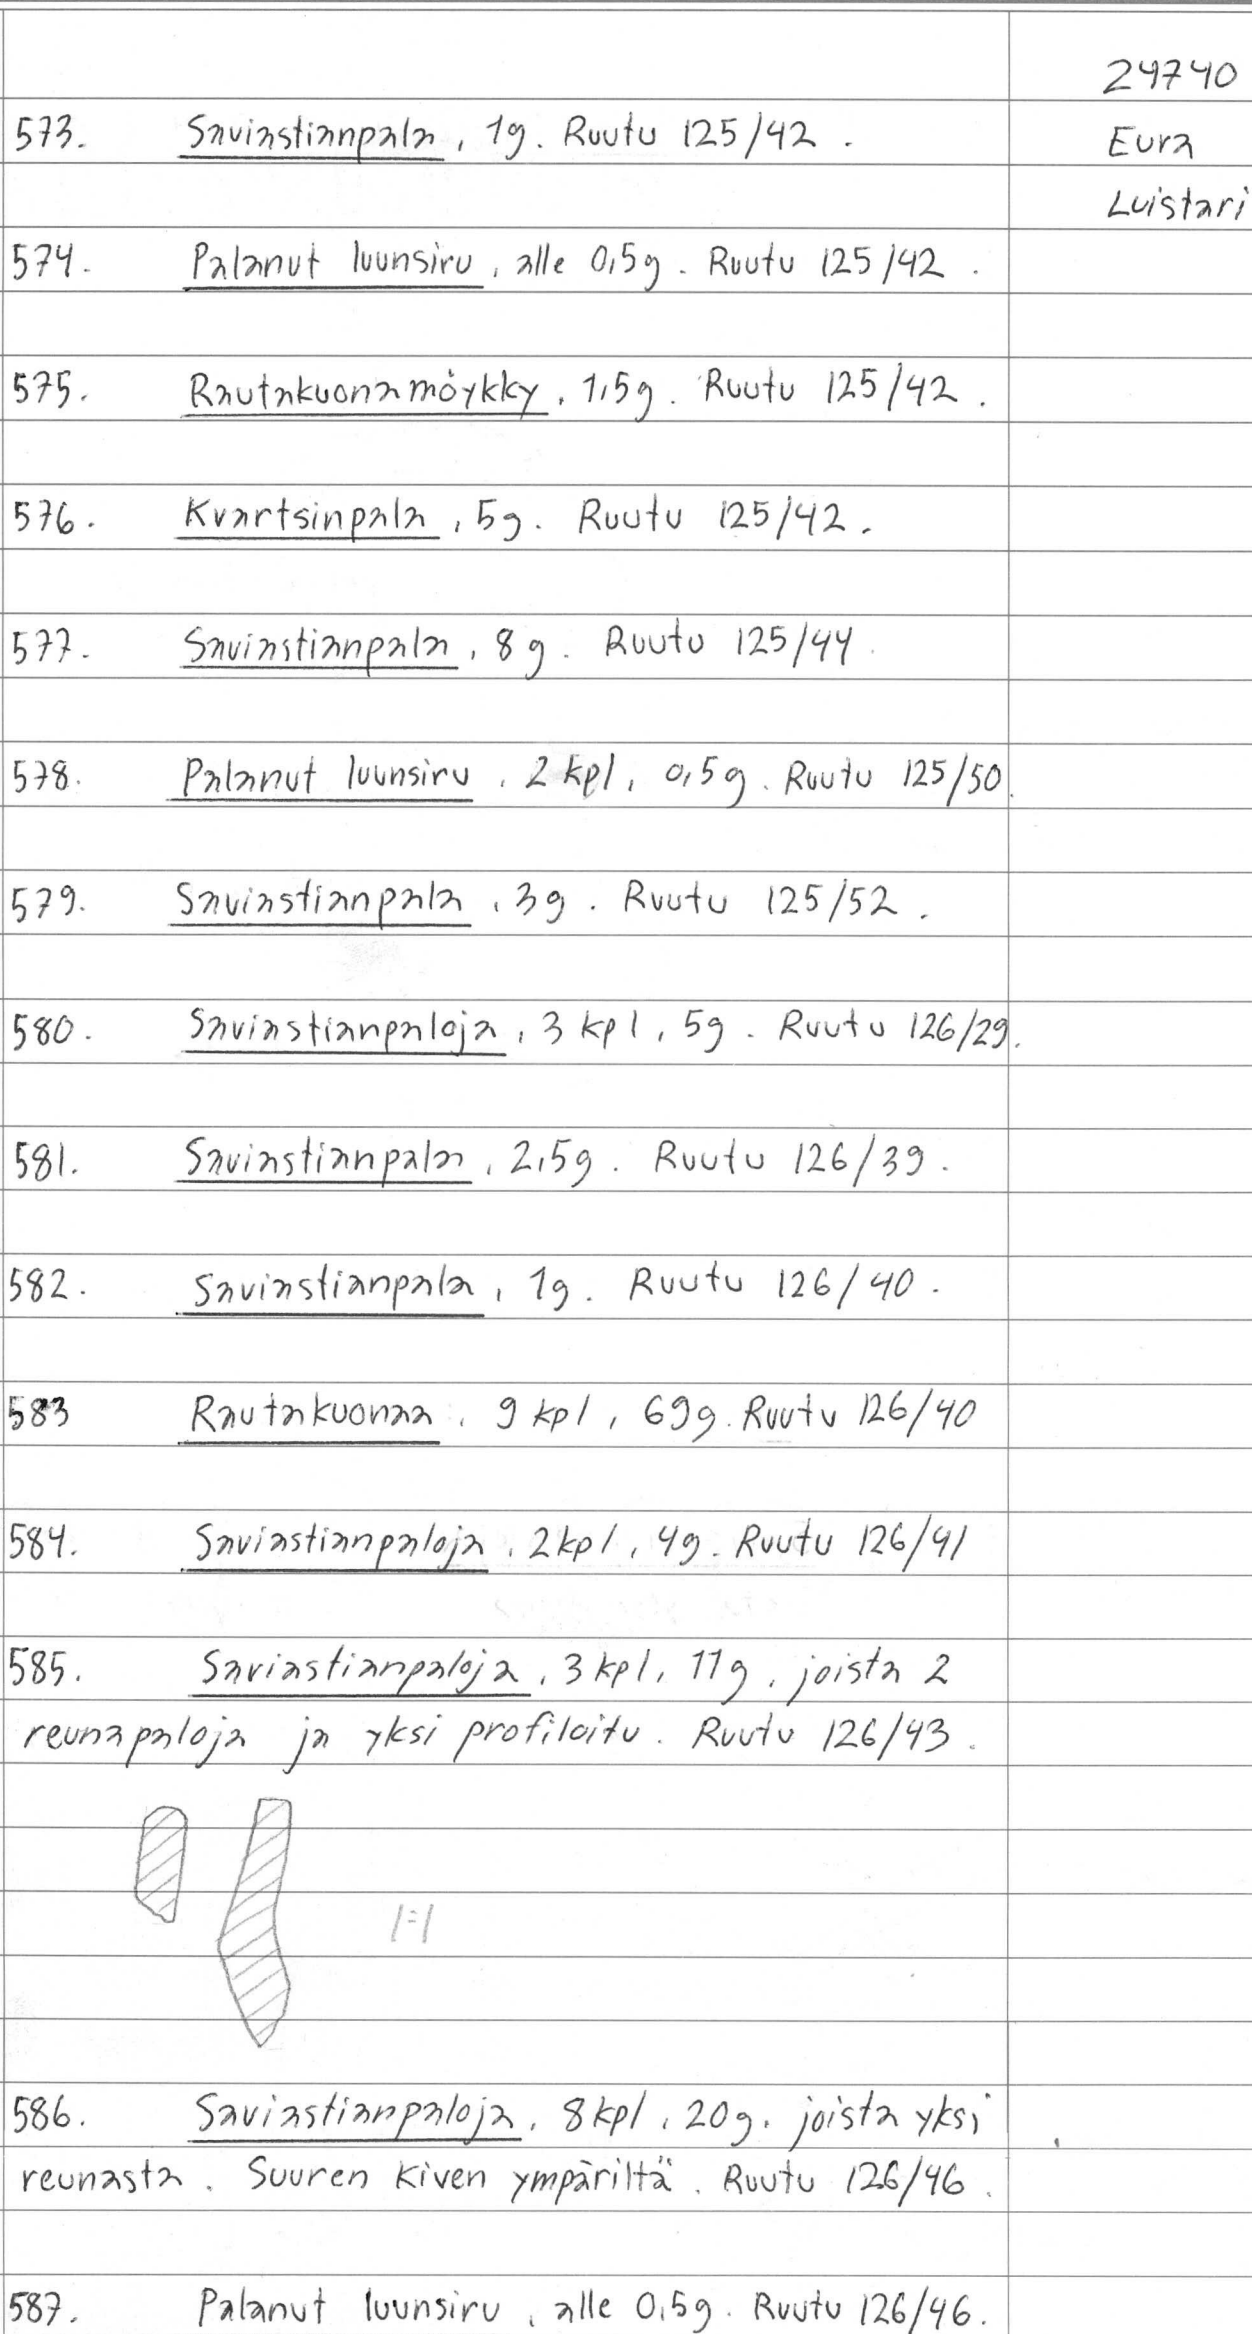 24740
573. Saviastianpala, 1g. Ruutu 125/42.
Eura
Luistari
574. Palanut luunsiru, alle 0,5g. Ruutu 125/42.
575. Rautakuonamöykky, 1,5g. Ruutu 125/42.
576. Kvartsinpala, 5g. Ruutu 125/42.
577. Saviastianpala, 8g. Ruutu 125/44.
578. Palanut luunsiru, 2 kpl, 0,5g. Ruutu 125/50.
579. Saviastianpala, 3g. Ruutu 125/52.
580. Saviastianpaloja, 3 kpl, 5g. Ruutu 126/29.
581. Saviastianpala, 2,5g. Ruutu 126/39.
582. Saviastianpala, 1g. Ruutu 126/40.
583 Rautakuonaa, 9 kpl, 69g. Ruutu 126/40
584. Saviastianpaloja, 2kpl, 4g. Ruutu 126/41
585. Saviastianpaloja, 3 kpl, 11g, joista 2
reunapaloja ja yksi profiloitu. Ruutu 126/43.
1:1
586. Saviastianpaloja, 8kpl, 20g, joista yksi
reunasta. Suuren kiven ympäriltä. Ruutu 126/46.
587. Palanut luunsiru, alle 0,5g. Ruutu 126/46.